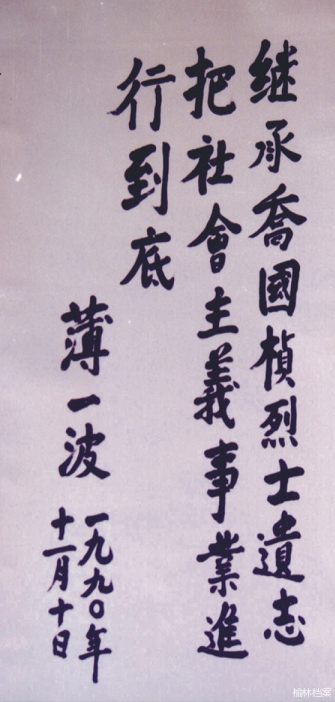 继承喬國楨烈士遺志
把社會主義事業進
行到底
薄一波
一九九〇年
十一月十日
榆林档案